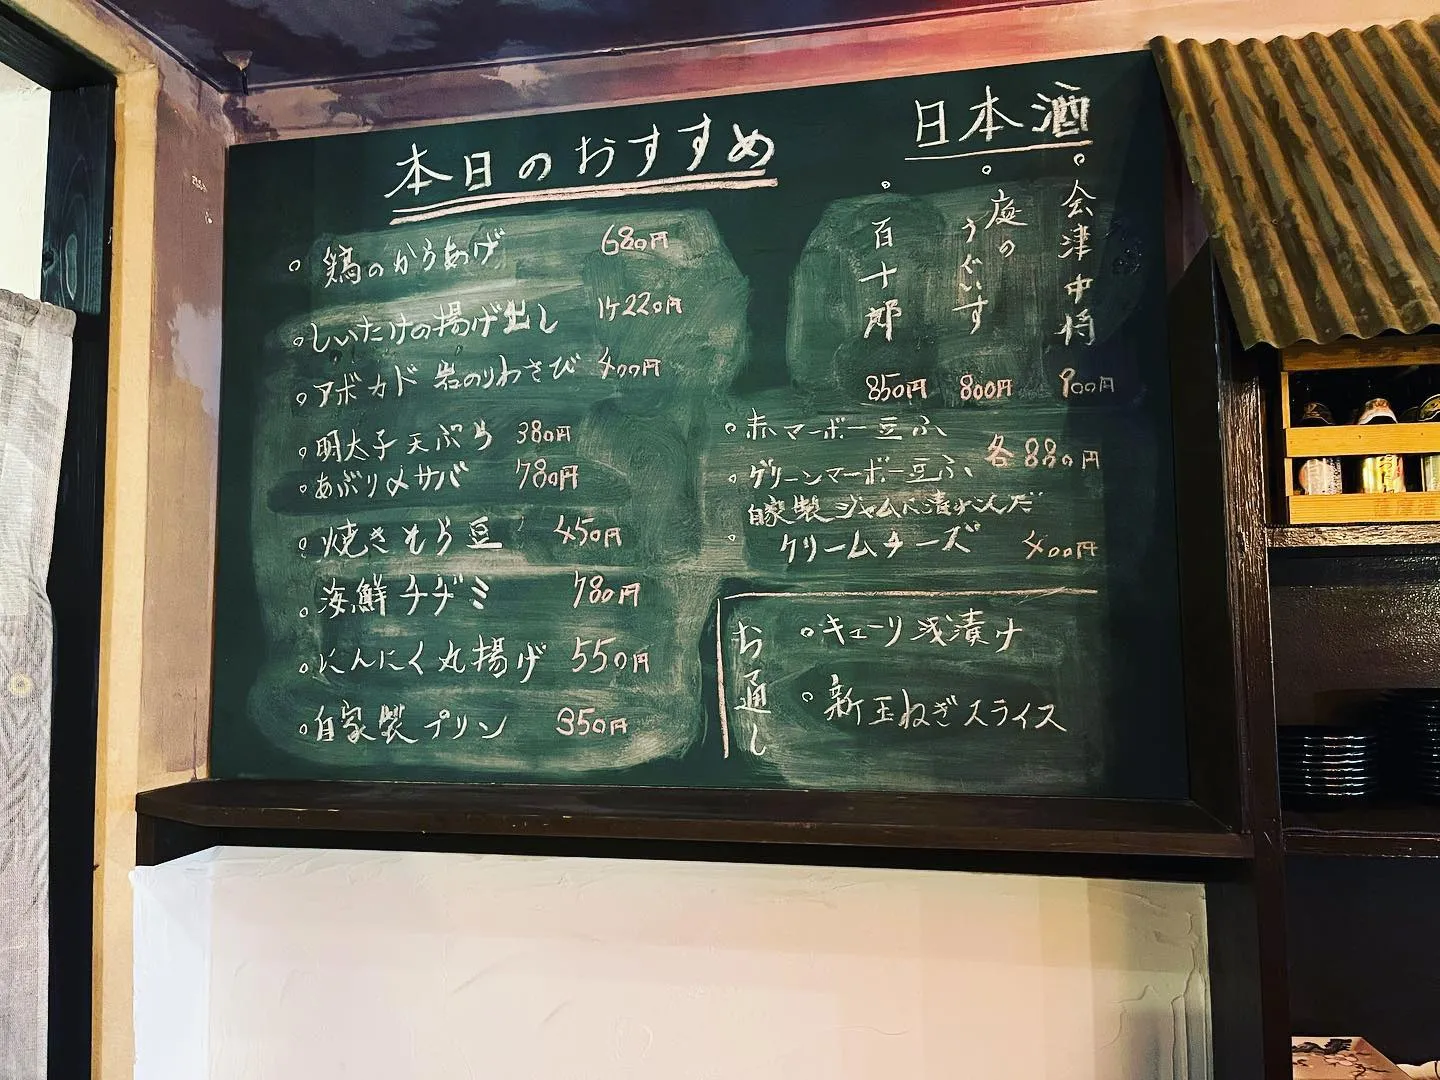 本日のおすすめ
○鶏のからあげ 680円
○しいたけの揚げ出し 1ケ220円
○アボカド岩のりわさび 400円
○明太子天ぷら 380円
○あぶり〆サバ 780円
○焼きもろ豆 450円
○海鮮チヂミ 780円
○にんにく丸揚げ 550円
○自家製プリン 350円
日本酒
○会津中将 900円
○庭のうぐいす 800円
○百十郎 850円
○赤マーボー豆ふ
○グリーンマーボー豆ふ 各880円
○自家製ジャムに漬けこんだ
クリームチーズ 400円
お通し
○キューリ浅漬け
○新玉ねぎスライス